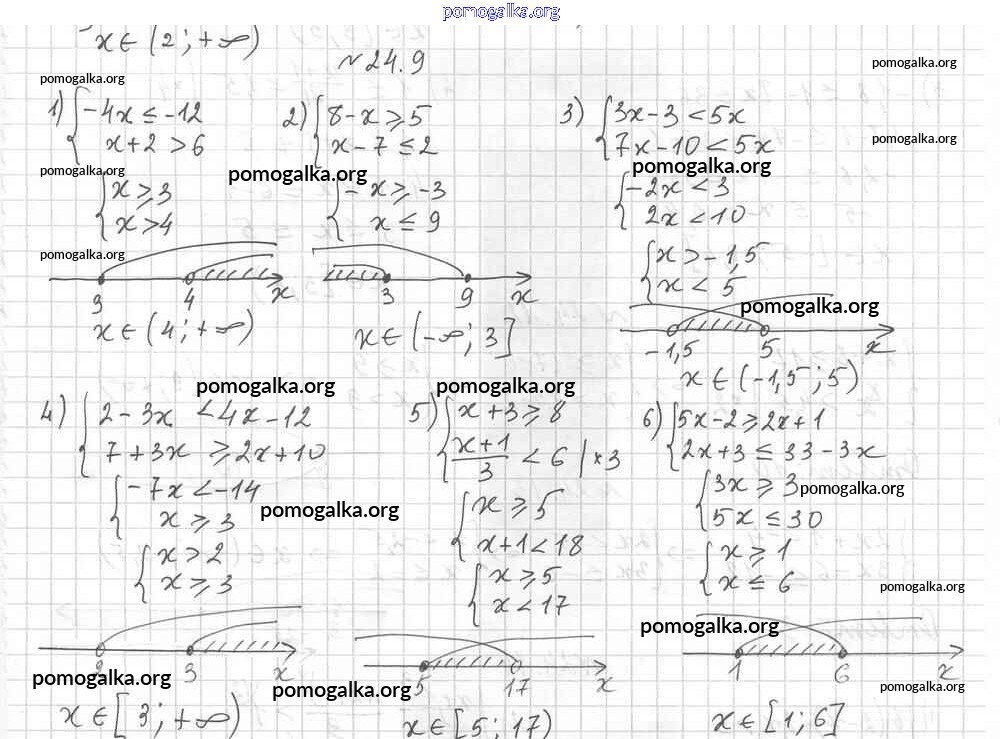 pomogalka.org
x ∈ (2; +∞)
№24.9
pomogalka.org
pomogalka.org
1) { -4x ≤ -12
x+2 > 6
2) { 8-x ≥ 5
x-7 ≤ 2
3) { 3x-3 < 5x
7x-10 < 5x
pomogalka.org
pomogalka.org
pomogalka.org
pomogalka.org
{ x ≥ 3
x > 4
{ -x ≥ -3
x ≤ 9
{ -2x < 3
2x < 10
pomogalka.org
{ x > -1,5
x < 5
3 4 x
3 9 x
pomogalka.org
-1,5 5 x
x ∈ (4; +∞)
x ∈ (-∞; 3]
x ∈ (-1,5; 5)
pomogalka.org
pomogalka.org
4) { 2-3x < 4x-12
7+3x ≥ 2x+10
5) { x+3 ≥ 8
(x+1)/3 < 6 | *3
6) { 5x-2 ≥ 2x+1
2x+3 ≤ 33-3x
{ -7x < -14
x ≥ 3
pomogalka.org
{ x ≥ 5
x+1 < 18
{ 3x ≥ 3
5x ≤ 30
pomogalka.org
{ x > 2
x ≥ 3
{ x ≥ 5
x < 17
{ x ≥ 1
x ≤ 6
pomogalka.org
pomogalka.org
2 3 x
5 17 x
1 6 x
pomogalka.org
pomogalka.org
pomogalka.org
x ∈ [3; +∞)
x ∈ [5; 17)
x ∈ [1; 6]